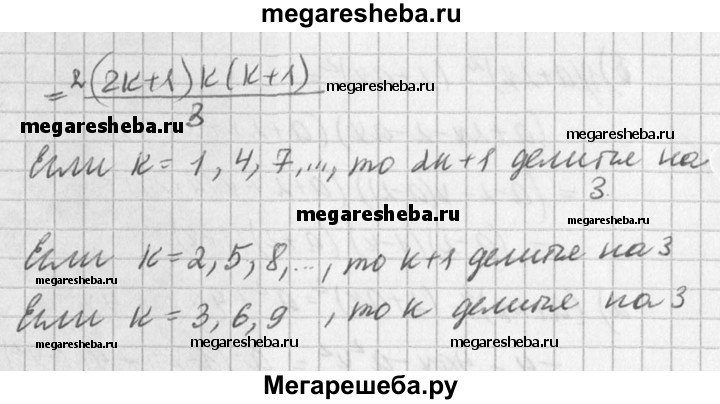 megaresheba.ru
= 2(2k+1)k(k+1)
megaresheba.ru
megaresheba.ru
3
megaresheba.ru
Если k = 1, 4, 7, ..., то 2k+1 делится на
3.
megaresheba.ru
megaresheba.ru
Если k = 2, 5, 8, ..., то k+1 делится на 3
megaresheba.ru
megaresheba.ru
Если k = 3, 6, 9 , то k делится на 3
megaresheba.ru
megaresheba.ru
Мегарешеба.ру